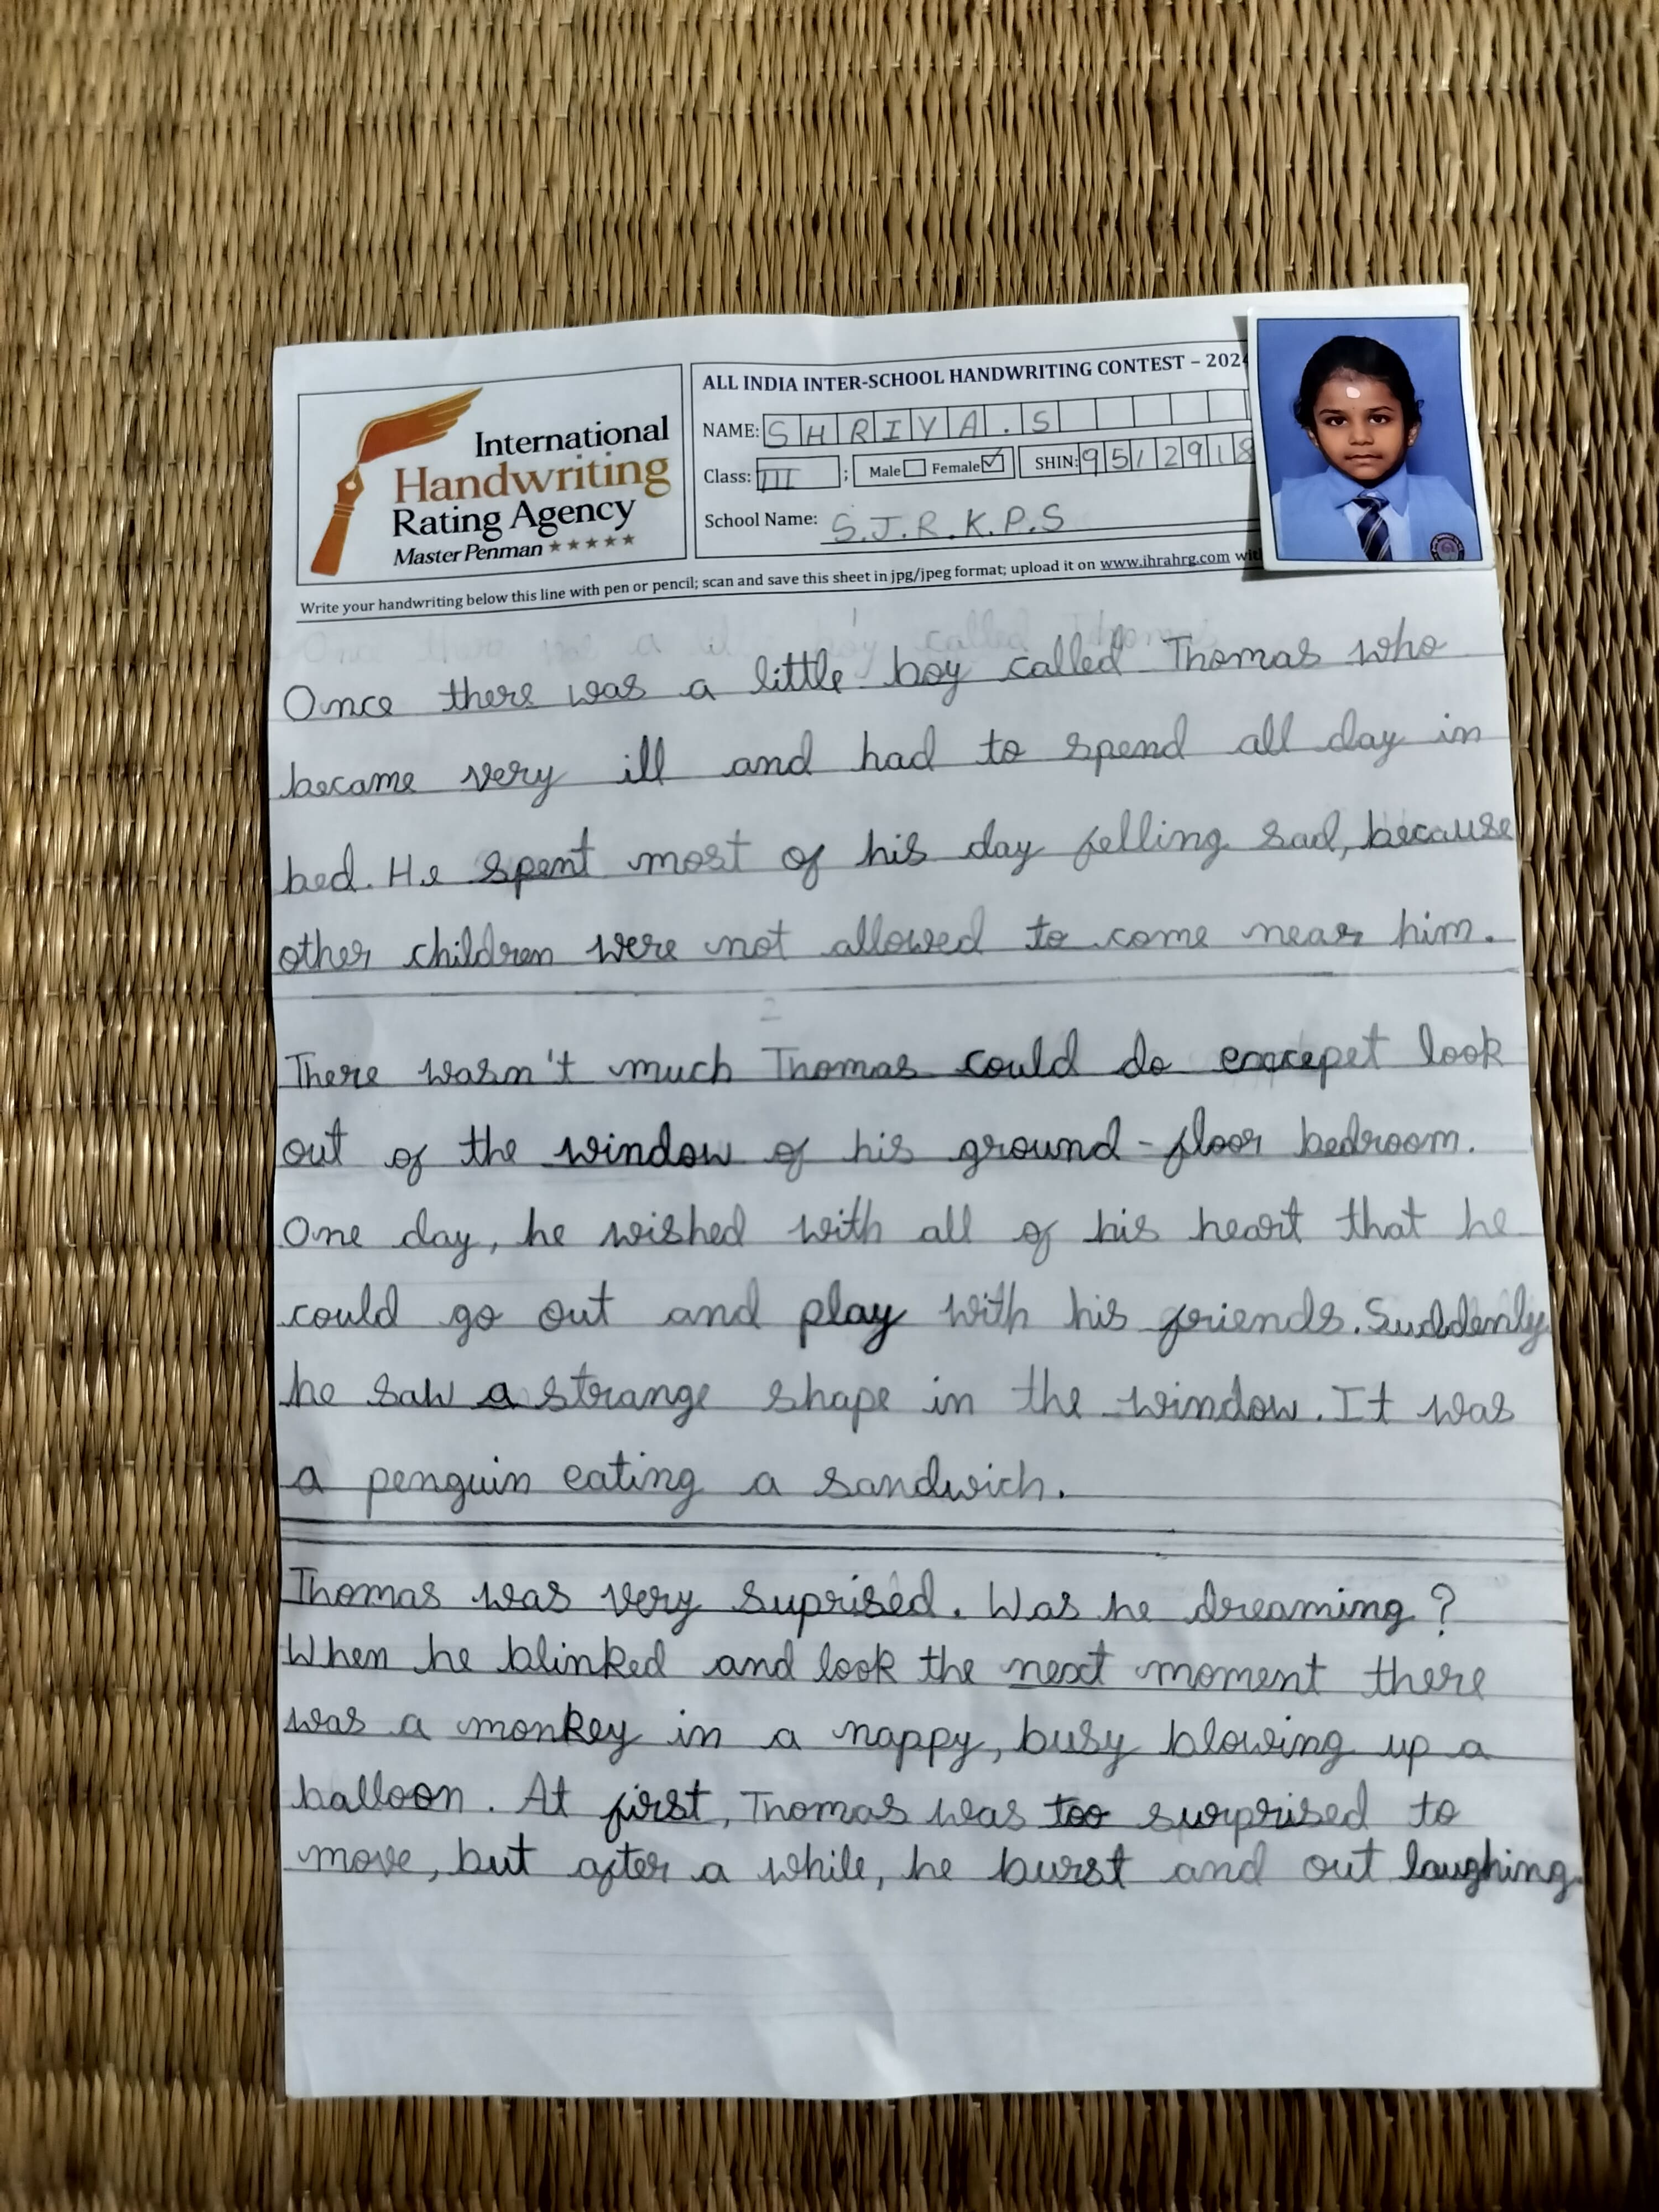 International
Handwriting
Rating Agency
Master Penman ★★★★★
ALL INDIA INTER-SCHOOL HANDWRITING CONTEST – 202
NAME: SHRIYA.S
Class: III ; Male Female ✓ SHIN: 9512918
School Name: S.J.R.K.P.S
Write your handwriting below this line with pen or pencil; scan and save this sheet in jpg/jpeg format; upload it on www.ihrahrg.com
Once there was a little boy called Thomas who
became very ill and had to spend all day in
bed. He spent most of his day felling sad, because
other children were not allowed to come near him.
There wasn't much Thomas could do look
out of the window of his ground-floor bedroom.
One day, he wished with all of his heart that he
could go out and play with his friends. Suddenly
he saw a strange shape in the window. It was
a penguin eating a sandwich.
Thomas was very suprised. Was he dreaming?
When he blinked and look the next moment there
was a monkey in a nappy, busy blowing up a
balloon. At first, Thomas was too surprised to
move, but after a while, he burst and out laughing.